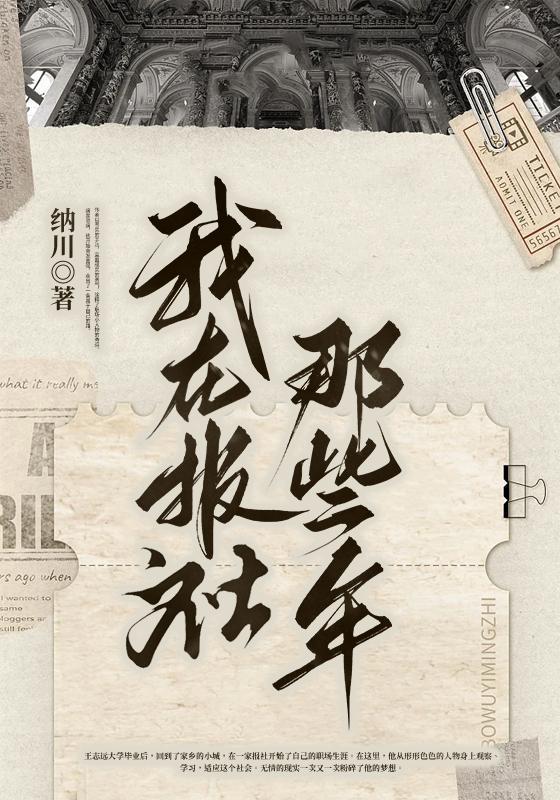 我在报社
那些年
纳川◎著
TICKET
ADMIT ONE
what it really me
A
RIL
rs ago when
I wanted to
same
bloggers ar
still feel
BOWUYIMINGZHI
王志远大学毕业后，回到了家乡的小城，在一家报社开始了自己的职场生涯。在这里，他从形形色色的人物身上观察、
学习，适应这个社会。无情的现实一次又一次粉碎了他的梦想。